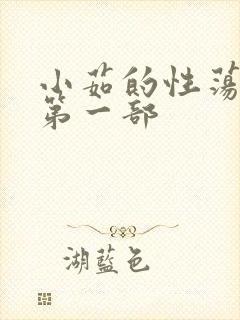 小茹的性荡
第一部
湖蓝色